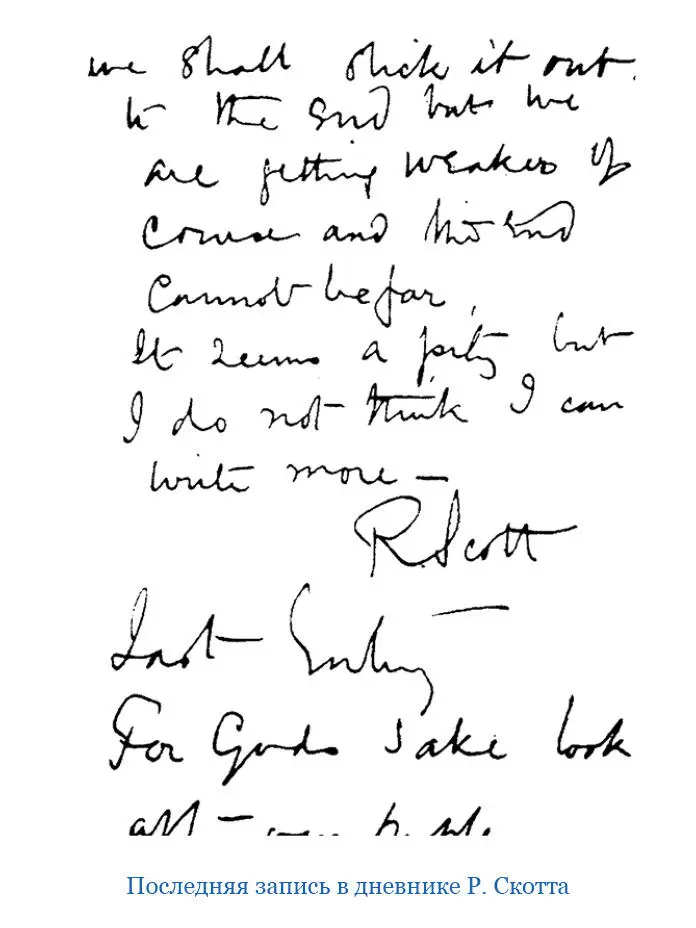 we shall stick it out
to the end but we
are getting weaker of
course and the end
cannot be far,
It seems a pity but
I do not think I can
write more —
R. Scott
Last Entry
For Gods sake look
Последняя запись в дневнике Р. Скотта